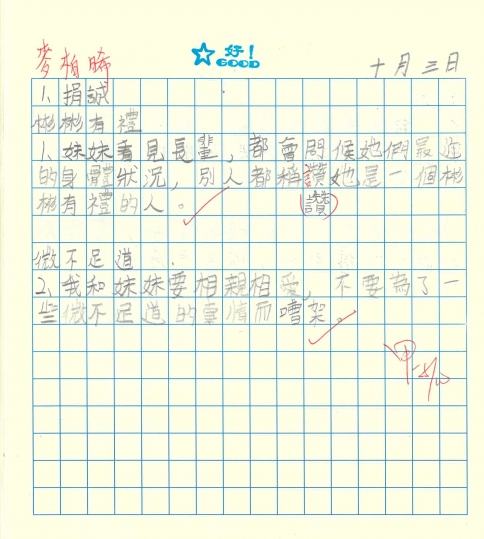 好！
GOOD
麥柏晞 十月三日
1、捐誠
彬彬有禮
1、妹妹看見長輩，都會問候她們最近
的身體狀況，別人都稱讚她是一個彬
彬有禮的人。
讚
微不足道
2、我和妹妹要相親相愛，不要為了一
些微不足道的事情而嘈架。
甲